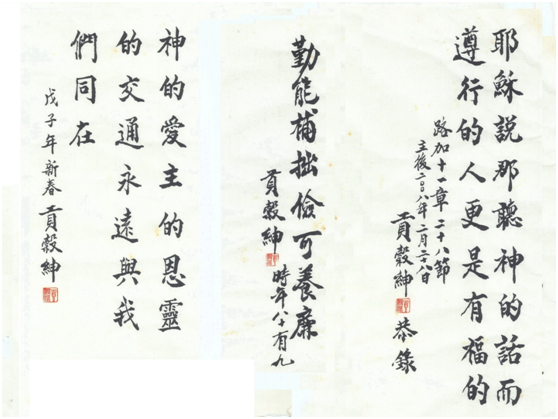 耶穌說那聽神的話而
遵行的人更是有福的
路加十一章二十八節
主後二00八年二月二十八日
貢穀紳 恭錄
勤能補拙儉可養廉
貢穀紳
時年八十有九
神的愛主的恩靈
的交通永遠與我
們同在
戊子年新春 貢穀紳